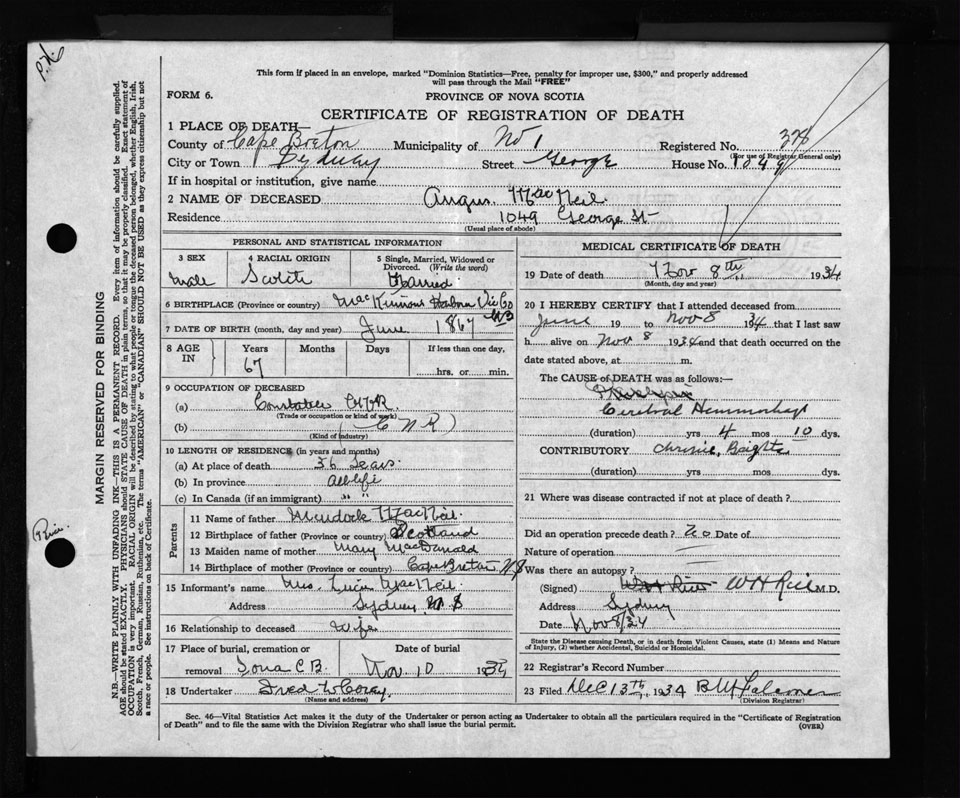 P.H.
This form if placed in an envelope, marked "Dominion Statistics—Free, penalty for improper use, $300," and properly addressed
will pass through the Mail "FREE"
FORM 6.
PROVINCE OF NOVA SCOTIA
CERTIFICATE OF REGISTRATION OF DEATH
1 PLACE OF DEATH—
County of Cape Breton Municipality of No 1 Registered No. 378
(For use of Registrar General only)
City or Town Sydney Street George House No. 1049
If in hospital or institution, give name
2 NAME OF DECEASED Angus MacNeil.
Residence 1049 George St
(Usual place of abode)
PERSONAL AND STATISTICAL INFORMATION
3 SEX 4 RACIAL ORIGIN 5 Single, Married, Widowed or
Divorced. (Write the word)
Male Scotch Married
6 BIRTHPLACE (Province or country) MacKinnons Harbor Vic Co
N S
7 DATE OF BIRTH (month, day and year) June 1867
8 AGE IN Years Months Days If less than one day,
67 hrs. or min.
9 OCCUPATION OF DECEASED
(a)
(Trade or occupation or kind of work)
(b) (C N R)
(Kind of industry)
10 LENGTH OF RESIDENCE (in years and months)
(a) At place of death 36 Years.
(b) In province All life
(c) In Canada (if an immigrant) " "
Parents
11 Name of father Murdock MacNeil.
12 Birthplace of father (Province or country) Scotland
13 Maiden name of mother Mary MacDonald
14 Birthplace of mother (Province or country) Cape Breton N S
15 Informant's name Mrs. MacNeil
Address Sydney N S
16 Relationship to deceased Wife
17 Place of burial, cremation or Date of burial
removal Iona C B. Nov. 10 1934
18 Undertaker Fred W Corey,
(Name and address)
MEDICAL CERTIFICATE OF DEATH
19 Date of death Nov 8th, 1934
(Month, day and year)
20 I HEREBY CERTIFY that I attended deceased from
June 19 to Nov 8 1934 that I last saw
h alive on Nov 8 1934 and that death occurred on the
date stated above, at m.
The CAUSE of DEATH was as follows:—
Cerebral Hemmorhage
(duration) yrs 4 mos 10 dys.
CONTRIBUTORY Chronic Brights
(duration) yrs mos dys.
21 Where was disease contracted if not at place of death?
Did an operation precede death? No Date of
Nature of operation —
Was there an autopsy?
(Signed) W H Rice M.D.
Address Sydney
Date Nov 8/34
State the Disease causing Death, or in death from Violent Causes, state (1) Means and Nature
of Injury, (2) whether Accidental, Suicidal or Homicidal.
22 Registrar's Record Number
23 Filed Dec 13th, 1934
(Division Registrar)
Sec. 46—Vital Statistics Act makes it the duty of the Undertaker or person acting as Undertaker to obtain all the particulars required in the "Certificate of Registration
of Death" and to file the same with the Division Registrar who shall issue the burial permit.
(OVER)
MARGIN RESERVED FOR BINDING
N.B.—WRITE PLAINLY WITH UNFADING INK—THIS IS A PERMANENT RECORD. Every item of information should be carefully supplied.
AGE should be stated EXACTLY. PHYSICIANS should STATE CAUSE OF DEATH in plain terms, so that it may be properly classified. Exact statement of
OCCUPATION is very important. RACIAL ORIGIN will be described by stating to what people or tongue the deceased person belonged, whether English, Irish,
Scotch, French, German, Russian, Ruthenian, etc. The terms "AMERICAN" or "CANADIAN" SHOULD NOT BE USED as they express citizenship but not
a race or people. See instructions on back of Certificate.
Rice.